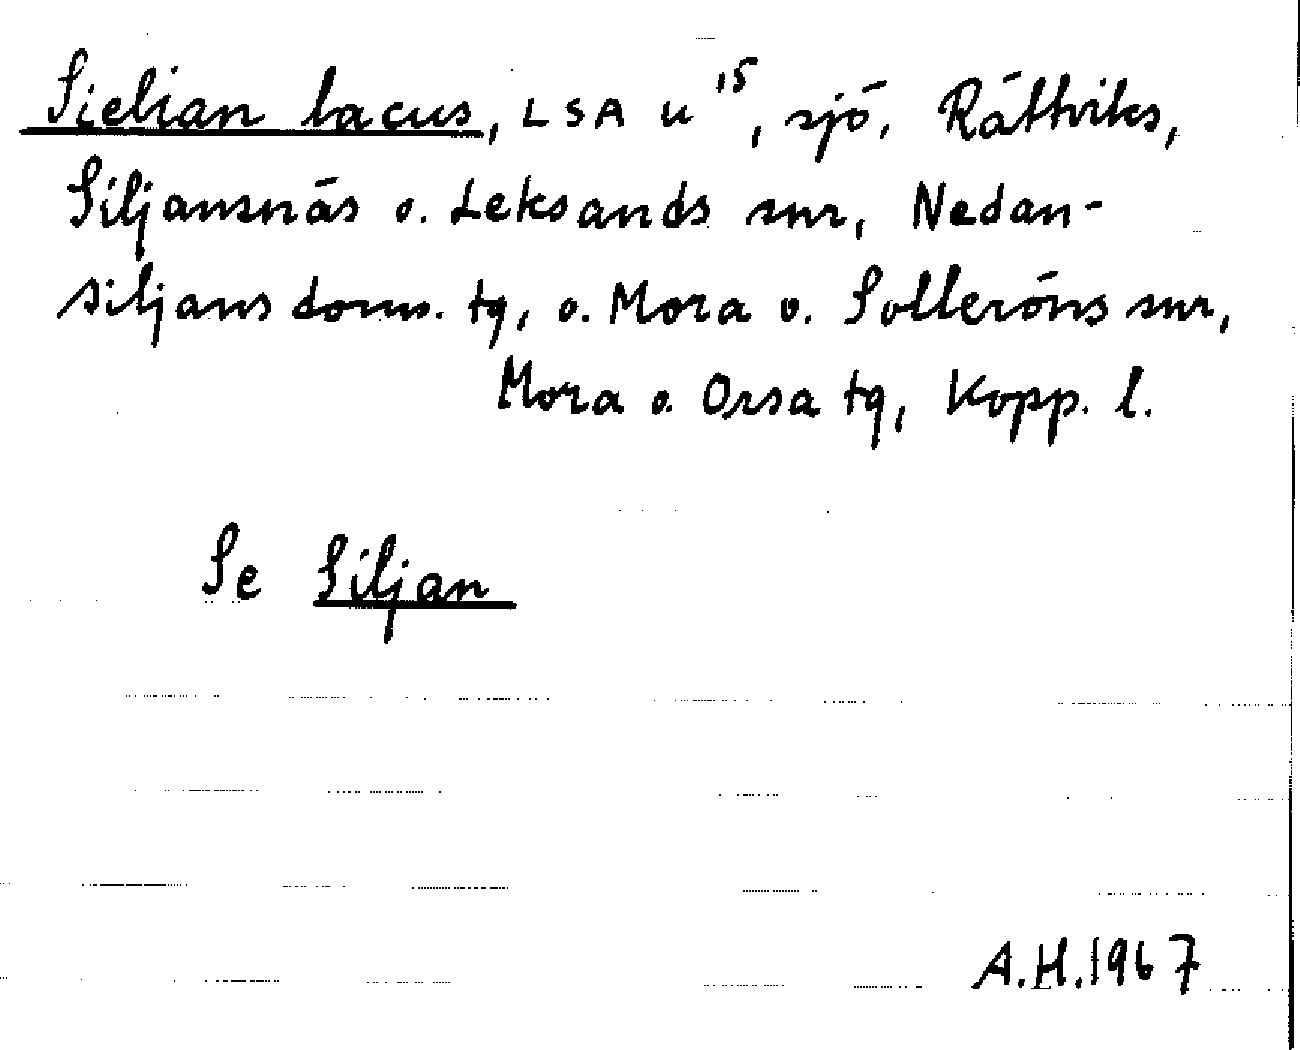 Sielian lacus, LSA u 15, sjö, Rättviks,
Siljansnäs o. Leksands snr, Nedan-
siljans doms. tg, o. Mora o. Solleröns snr,
Mora o. Orsa tg, Kopp. l.
Se Siljan
A.H.1967